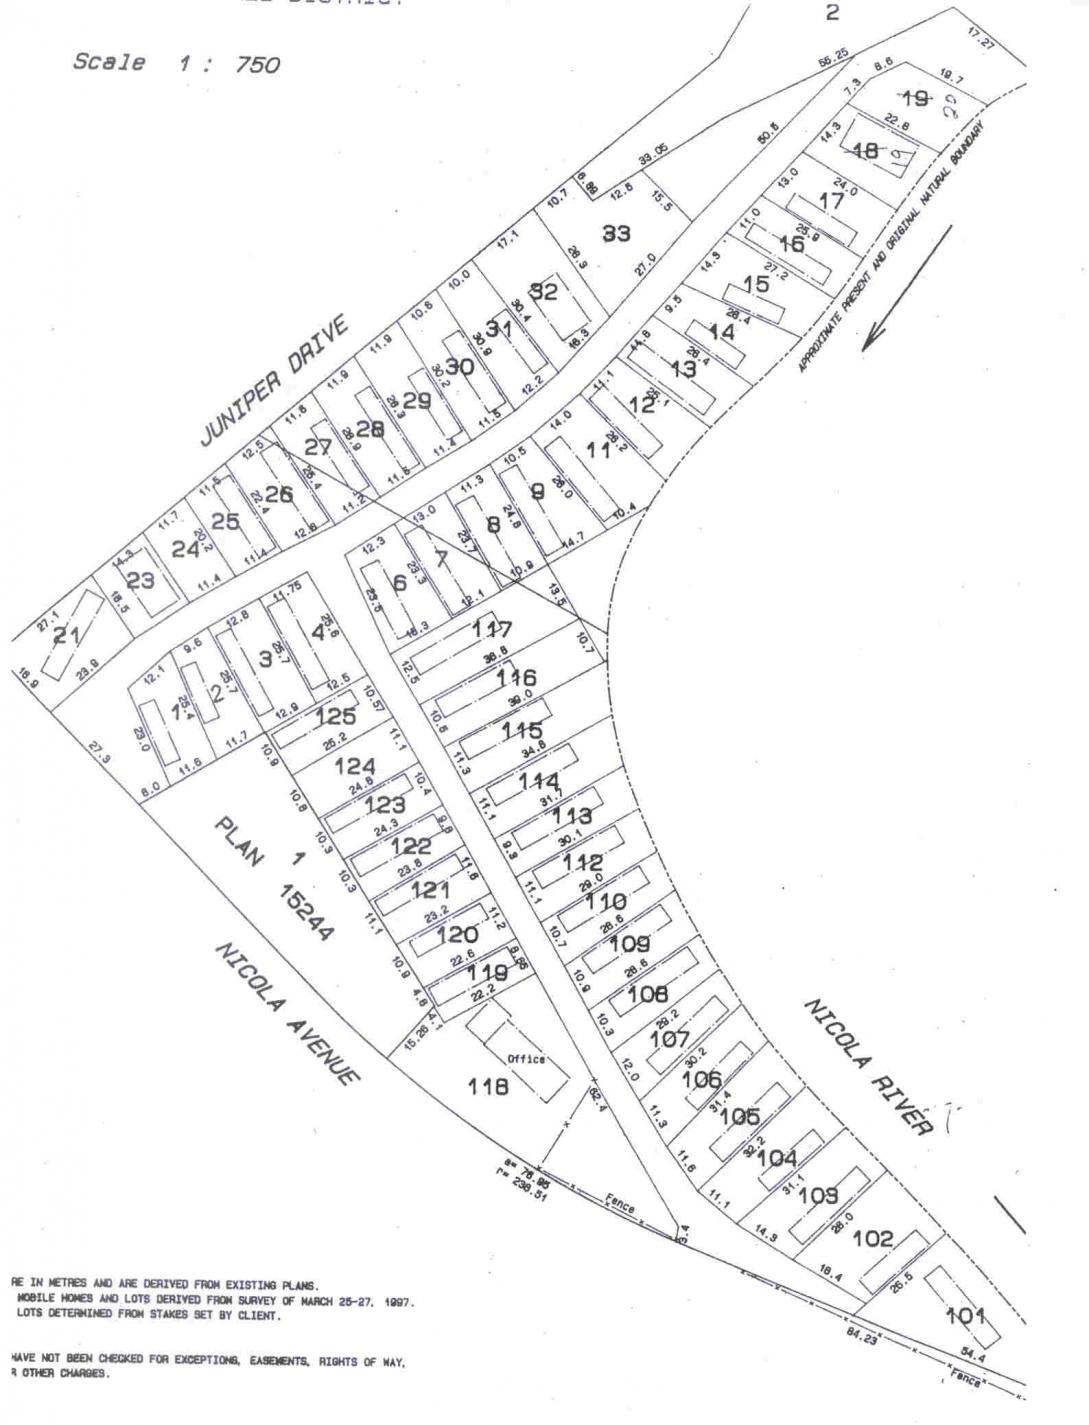 Scale 1 : 750
2
17.27
55.25
8.6
19.7
7.3
19
20
22.8
14.3
18
19
50.5
33.05
6.88
12.6
15.5
13.0
24.0
17
10.7
33
11.0
25.9
16
17.1
26.3
27.0
14.3
27.2
15
APPROXIMATE PRESENT AND ORIGINAL NATURAL BOUNDARY
10.0
32
9.5
26.4
14
10.6
30.4
31
16.3
11.8
26.4
13
JUNIPER DRIVE
11.9
30.9
30
12.2
11.1
25.1
12
11.9
30.2
29
11.5
14.0
26.2
11
11.6
28
11.4
10.5
26.0
10.4
12.5
27
26.9
11.5
11.3
9
24.8
14.7
11.5
26
25.4
11.2
13.0
8
23.7
10.9
11.7
25
22.4
12.8
12.3
7
23.3
12.1
14.3
24
20.2
11.4
6
23.5
16.3
13.5
27.1
23
16.5
11.4
11.75
21
12.8
4
25.6
117
10.7
16.9
23.9
9.6
3
25.7
12.5
12.5
38.8
12.1
2
25.7
12.9
116
1
25.4
11.7
10.57
10.5
39.0
23.0
11.6
125
115
27.3
6.0
10.9
25.2
11.1
11.3
34.8
124
114
10.8
24.8
10.4
11.1
31.7
123
113
PLAN 15244
1
10.3
24.3
9.8
9.3
30.1
122
112
10.3
23.8
11.8
11.1
29.0
121
110
11.1
23.2
11.2
10.7
28.6
120
109
10.9
22.6
8.66
10.9
28.6
119
108
4.8
22.2
10.3
4.1
29.2
15.26
107
NICOLA AVENUE
Office
12.0
30.2
118
106
62.4
11.3
31.4
105
NICOLA RIVER
11.6
104
a= 76.95
r= 238.51
11.1
31.1
103
Fence
3.4
14.3
28.0
102
18.4
26.5
101
84.23
54.4
Fence
RE IN METRES AND ARE DERIVED FROM EXISTING PLANS.
MOBILE HOMES AND LOTS DERIVED FROM SURVEY OF MARCH 25-27, 1997.
LOTS DETERMINED FROM STAKES SET BY CLIENT.
HAVE NOT BEEN CHECKED FOR EXCEPTIONS, EASEMENTS, RIGHTS OF WAY,
R OTHER CHARGES.